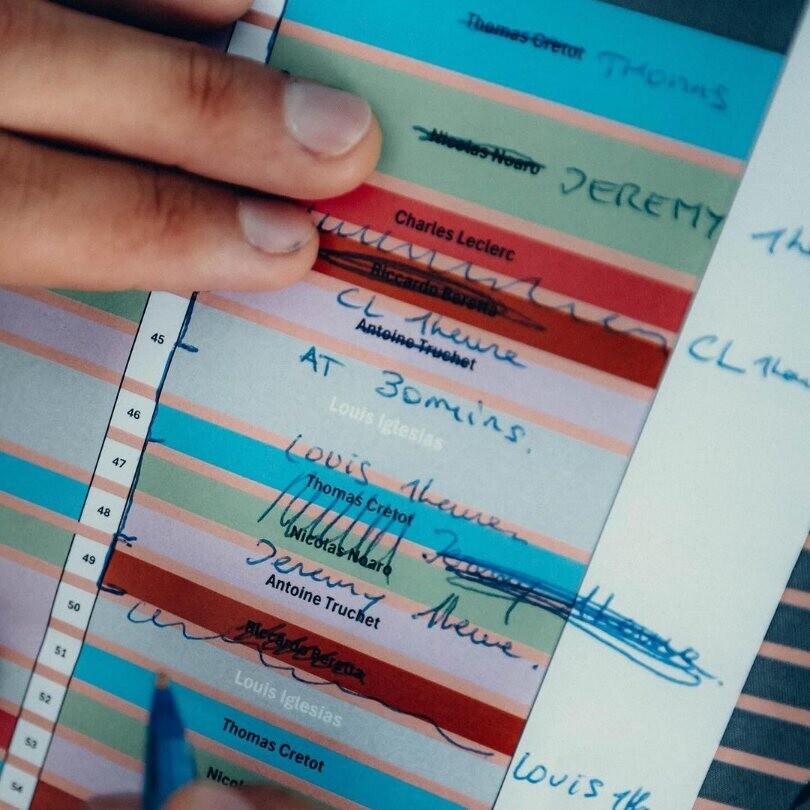 Thomas Cretot THOMAS
Nicolas Noaro JEREMY
Charles Leclerc
Riccardo Beretta
CL 1heure
CL 1heu
Antoine Truchet
45
AT 30mins.
Louis Iglesias
46
Louis 1heure
47
Thomas Cretot
48
Nicolas Noaro
Jeremy 1heure.
49
Antoine Truchet
50
Riccardo Beretta
51
Louis Iglesias
52
Thomas Cretot
53
Louis 1h
Nicol
54